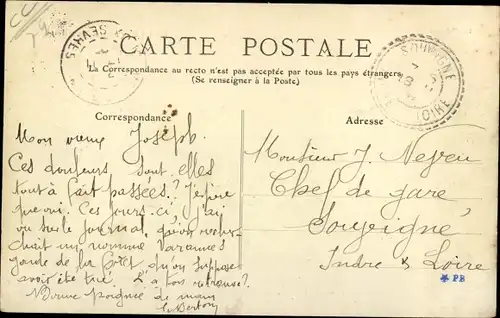 CARTE POSTALE
La Correspondance au recto n'est pas acceptée par tous les pays étrangers
(Se renseigner à la Poste)
Correspondance
Adresse
SEVRES
SOUVIGNÉ
Mon vieux Joseph.
Ces douleurs sont elles
tout à fait passées? J'espère
que oui. Ces jours-ci j'ai
vu sur le journal, qu'on recher-
chait un nommé Varannes
garde de la Forêt qu'on suppose
avoir été tué. L'a-t-on retrouvé?
Bonne poignée de main
Monsieur J. Neveu
Chef de gare
Souvigné
Indre & Loire
PB